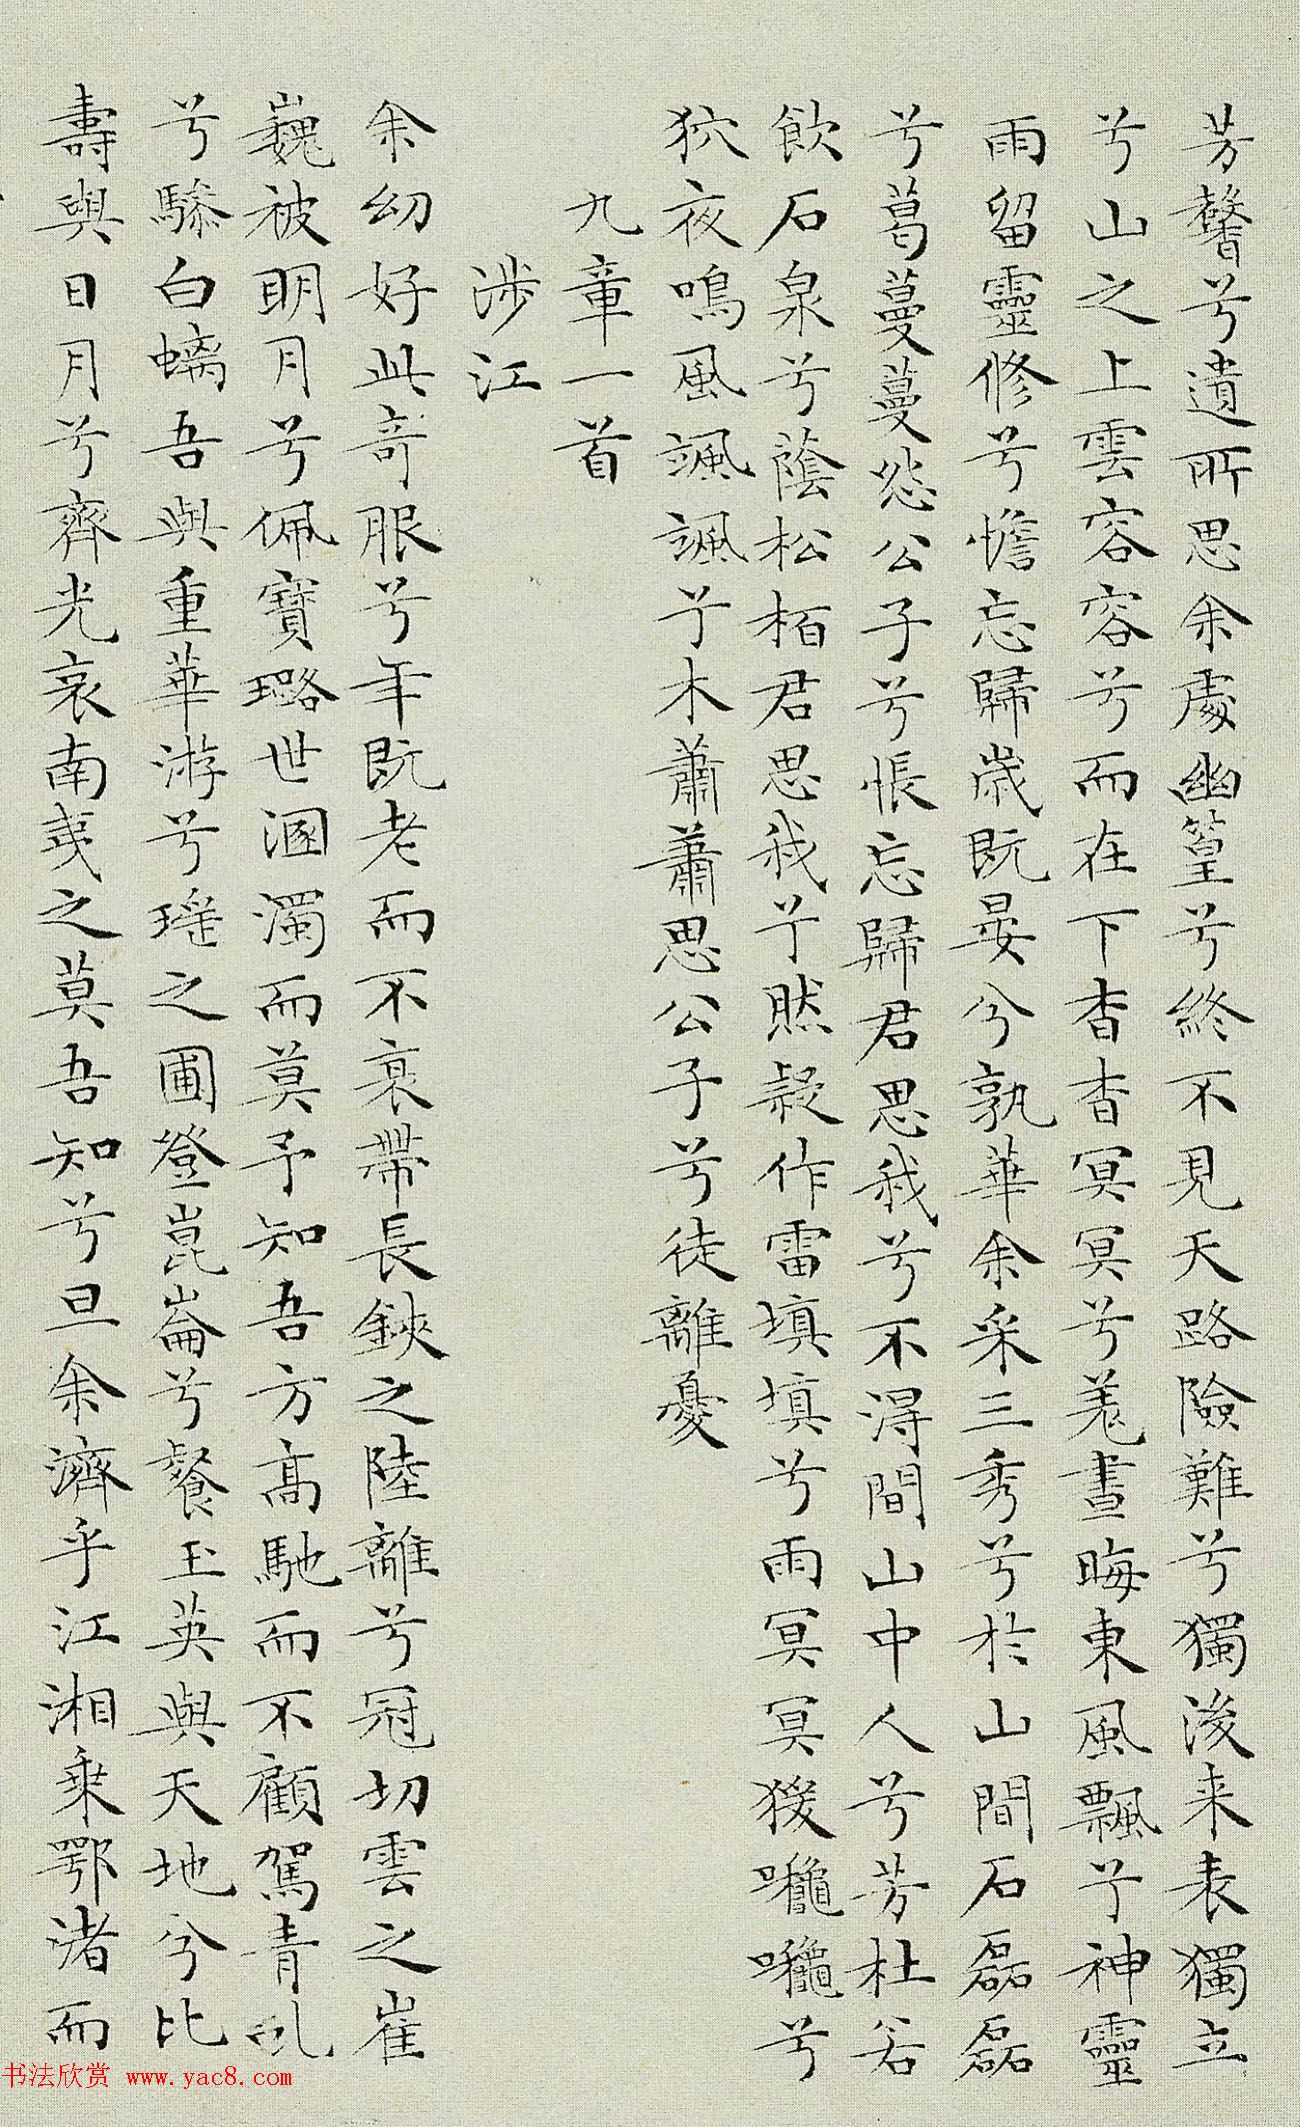 芳馨兮遺所思余處幽篁兮終不見天路險難兮獨後来表獨立
兮山之上雲容容兮而在下杳杳冥冥兮羌晝晦東風飄兮神靈
雨留靈修兮憺忘歸歲既晏兮孰華余采三秀兮於山間石磊磊
兮葛蔓蔓怨公子兮悵忘歸君思我兮不得間山中人兮芳杜若
飲石泉兮蔭松栢君思我兮然疑作雷填填兮雨冥冥猨兮
狖夜鳴風颯颯兮木蕭蕭思公子兮徒離憂
九章一首
涉江
余幼好此奇服兮年既老而不衰帶長鋏之陸離兮冠切雲之崔
巍被明月兮佩寶璐世溷濁而莫予知吾方高馳而不顧駕青虬
兮驂白螭吾與重華游兮瑤之圃登崑崙兮餐玉英與天地兮比
壽與日月兮齊光哀南夷之莫吾知兮旦余濟乎江湘乘鄂渚而
书法欣赏 www.yac8.com